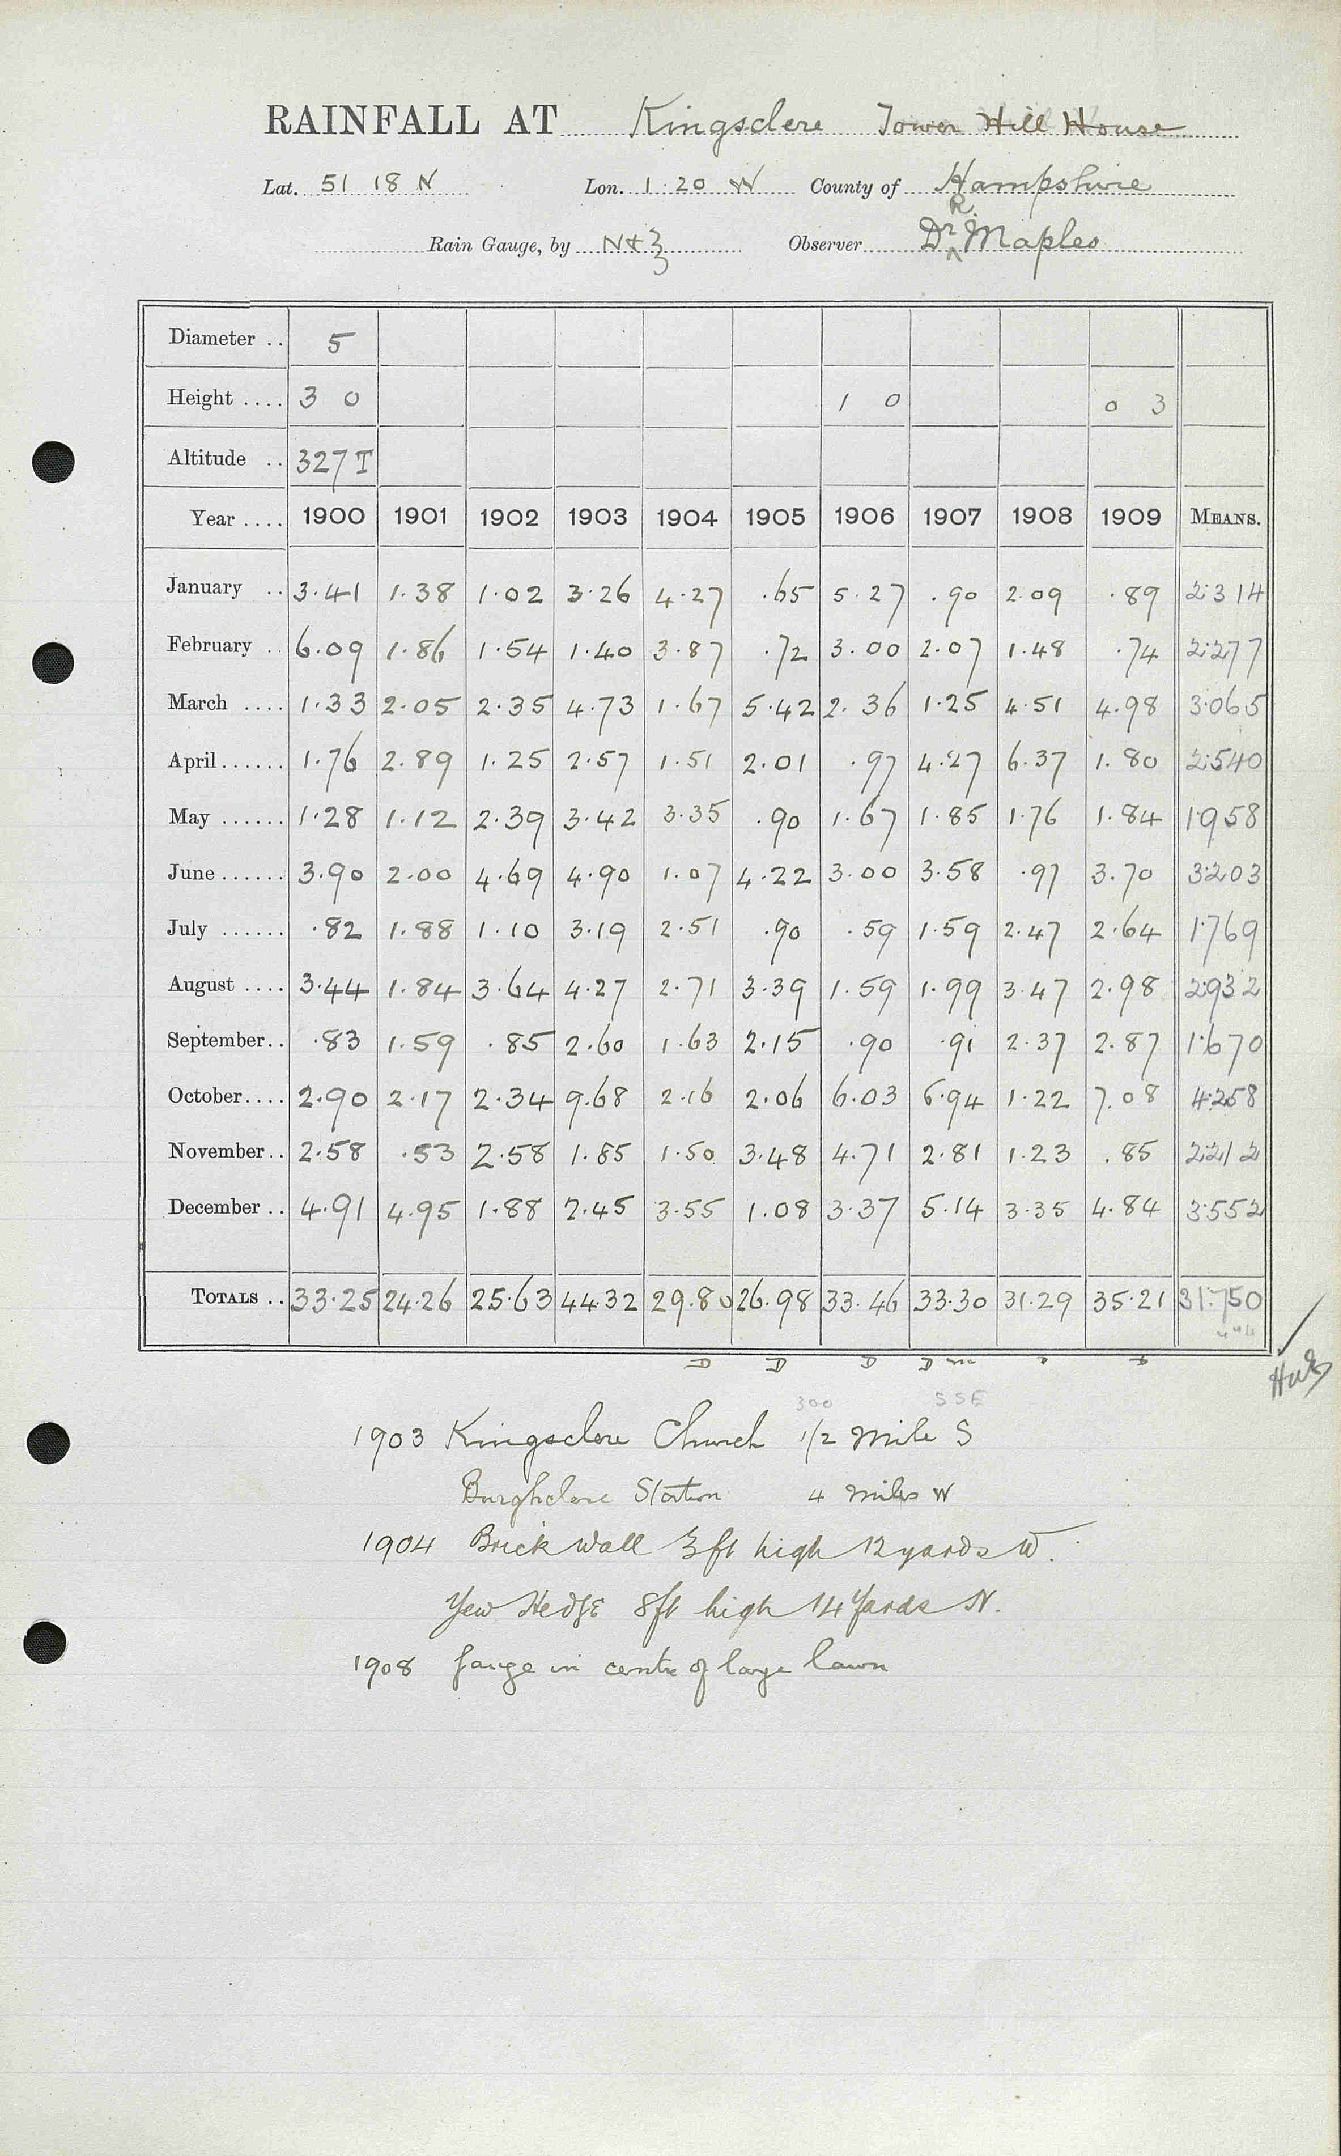 RAINFALL AT Kingsclere Tower Hill House
Lat. 51 18 N Lon. 1 20 W County of Hampshire
Rain Gauge, by N & Z Observer Dr R. Maples
Diameter .. 5
Height .... 3 0 1 0 0 3
Altitude .. 327 T
Year .... 1900 1901 1902 1903 1904 1905 1906 1907 1908 1909 MEANS.
January .. 3.41 1.38 1.02 3.26 4.27 .65 5.27 .90 2.09 .89 2.314
February .. 6.09 1.86 1.54 1.40 3.87 .72 3.00 2.07 1.48 .74 2.277
March .... 1.33 2.05 2.35 4.73 1.67 5.42 2.36 1.25 4.51 4.98 3.065
April...... 1.76 2.89 1.25 2.57 1.51 2.01 .97 4.27 6.37 1.80 2.540
May ...... 1.28 1.12 2.39 3.42 3.35 .90 1.67 1.85 1.76 1.84 1.958
June...... 3.90 2.00 4.69 4.90 1.07 4.22 3.00 3.58 .97 3.70 3.203
July ...... .82 1.88 1.10 3.19 2.51 .90 .59 1.59 2.47 2.64 1.769
August .... 3.44 1.84 3.64 4.27 2.71 3.39 1.59 1.99 3.47 2.98 2.932
September.. .83 1.59 .85 2.60 1.63 2.15 .90 .91 2.37 2.87 1.670
October.... 2.90 2.17 2.34 9.68 2.16 2.06 6.03 6.94 1.22 7.08 4.258
November.. 2.58 .53 2.58 1.85 1.50 3.48 4.71 2.81 1.23 .85 2.212
December .. 4.91 4.95 1.88 2.45 3.55 1.08 3.37 5.14 3.35 4.84 3.552
TOTALS .. 33.25 24.26 25.63 44.32 29.80 26.98 33.46 33.30 31.29 35.21 31.750
D D D D m
300 SSE
1903 Kingsclere Church 1/2 mile S
Burghclere Station 4 miles W
1904 Brick Wall 3ft high 12 yards W.
Yew Hedge 8ft high 14 Yards N.
1908 Gauge in centre of large lawn